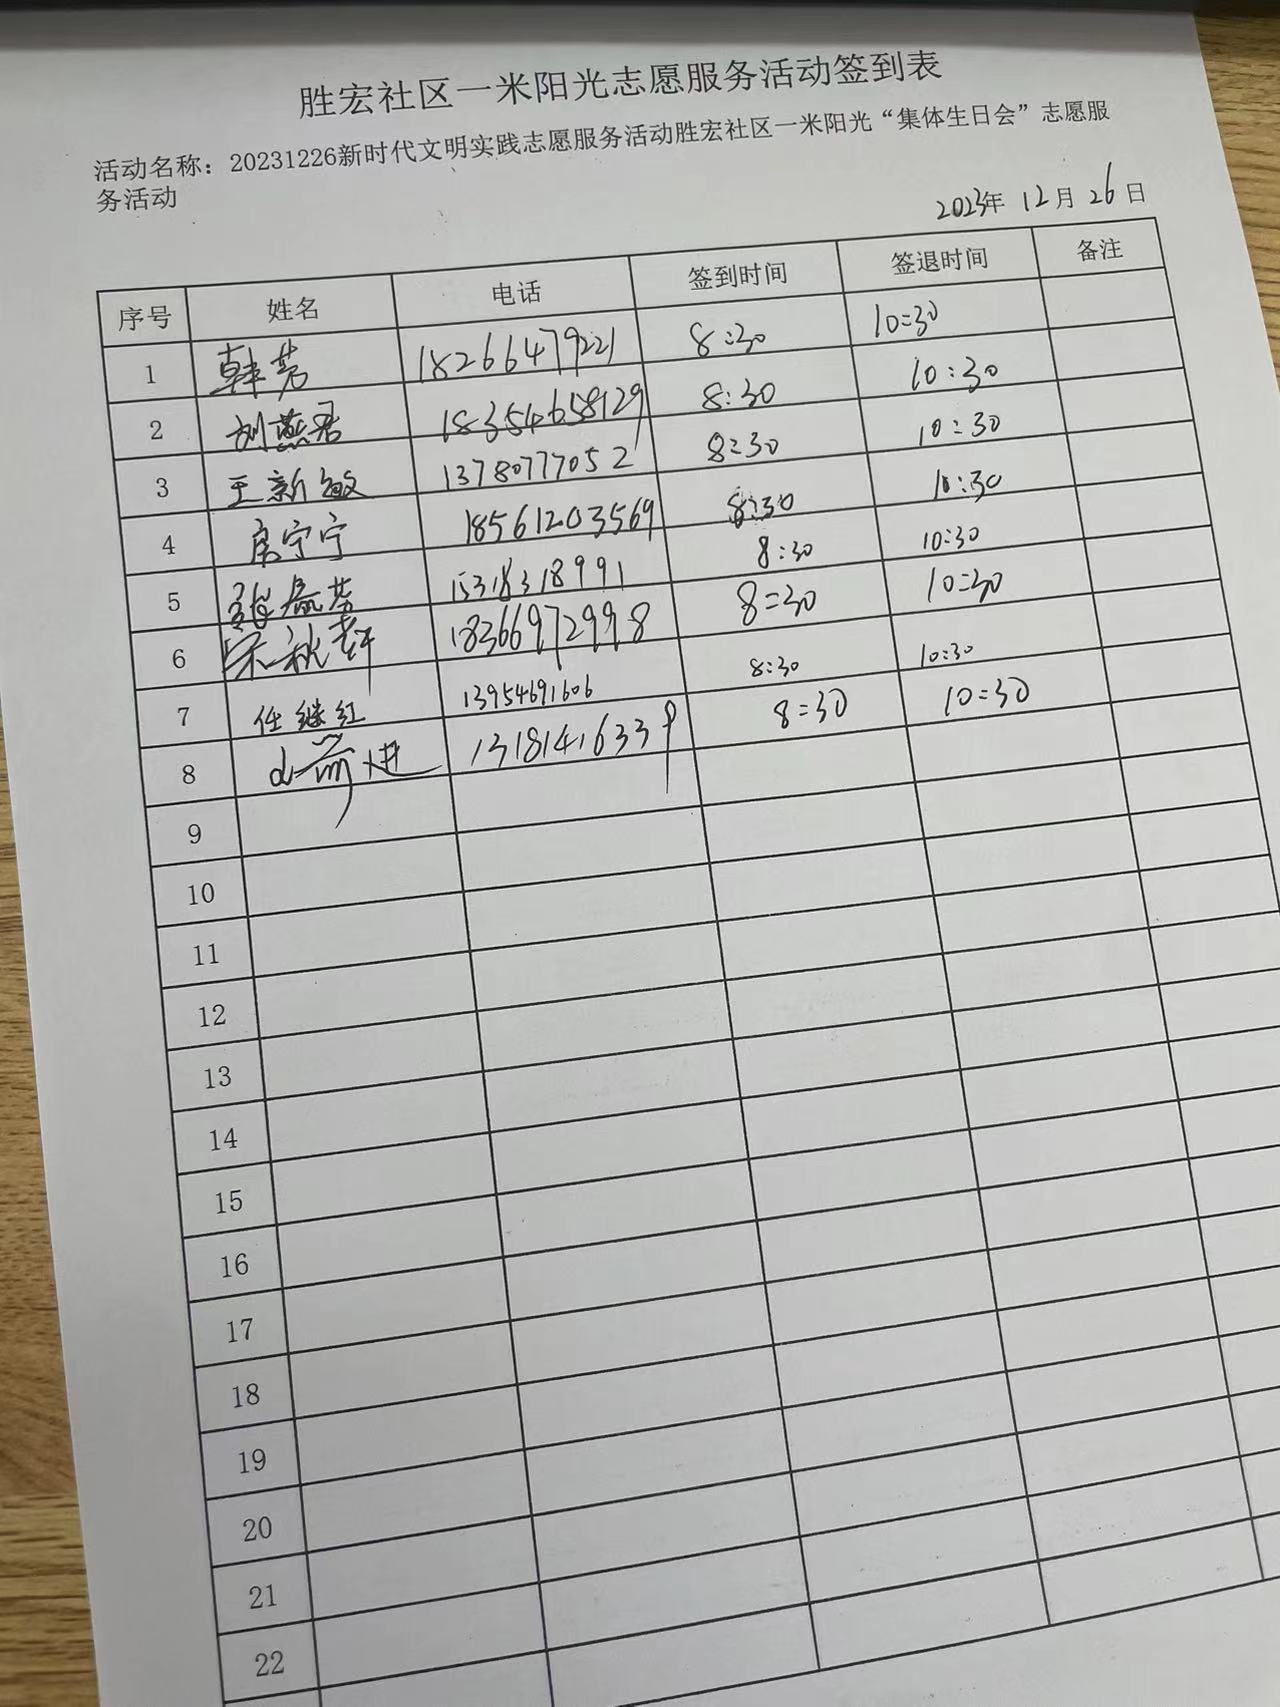 胜宏社区一米阳光志愿服务活动签到表
活动名称：20231226新时代文明实践志愿服务活动胜宏社区一米阳光“集体生日会”志愿服
务活动
2023年 12月 26日
序号 姓名 电话 签到时间 签退时间 备注
1 韩芳 18266479221 8:30 10:30
2 刘燕君 18354658129 8:30 10:30
3 王新敏 13780777052 8:30 10:30
4 房宁宁 18561203569 8:30 10:30
5 15318318991 8:30 10:30
6 宋秋轩 18366972998 8:30 10:30
7 任继红 13954691606 8:30 10:30
8 13181416339 8:30 10:30
9
10
11
12
13
14
15
16
17
18
19
20
21
22